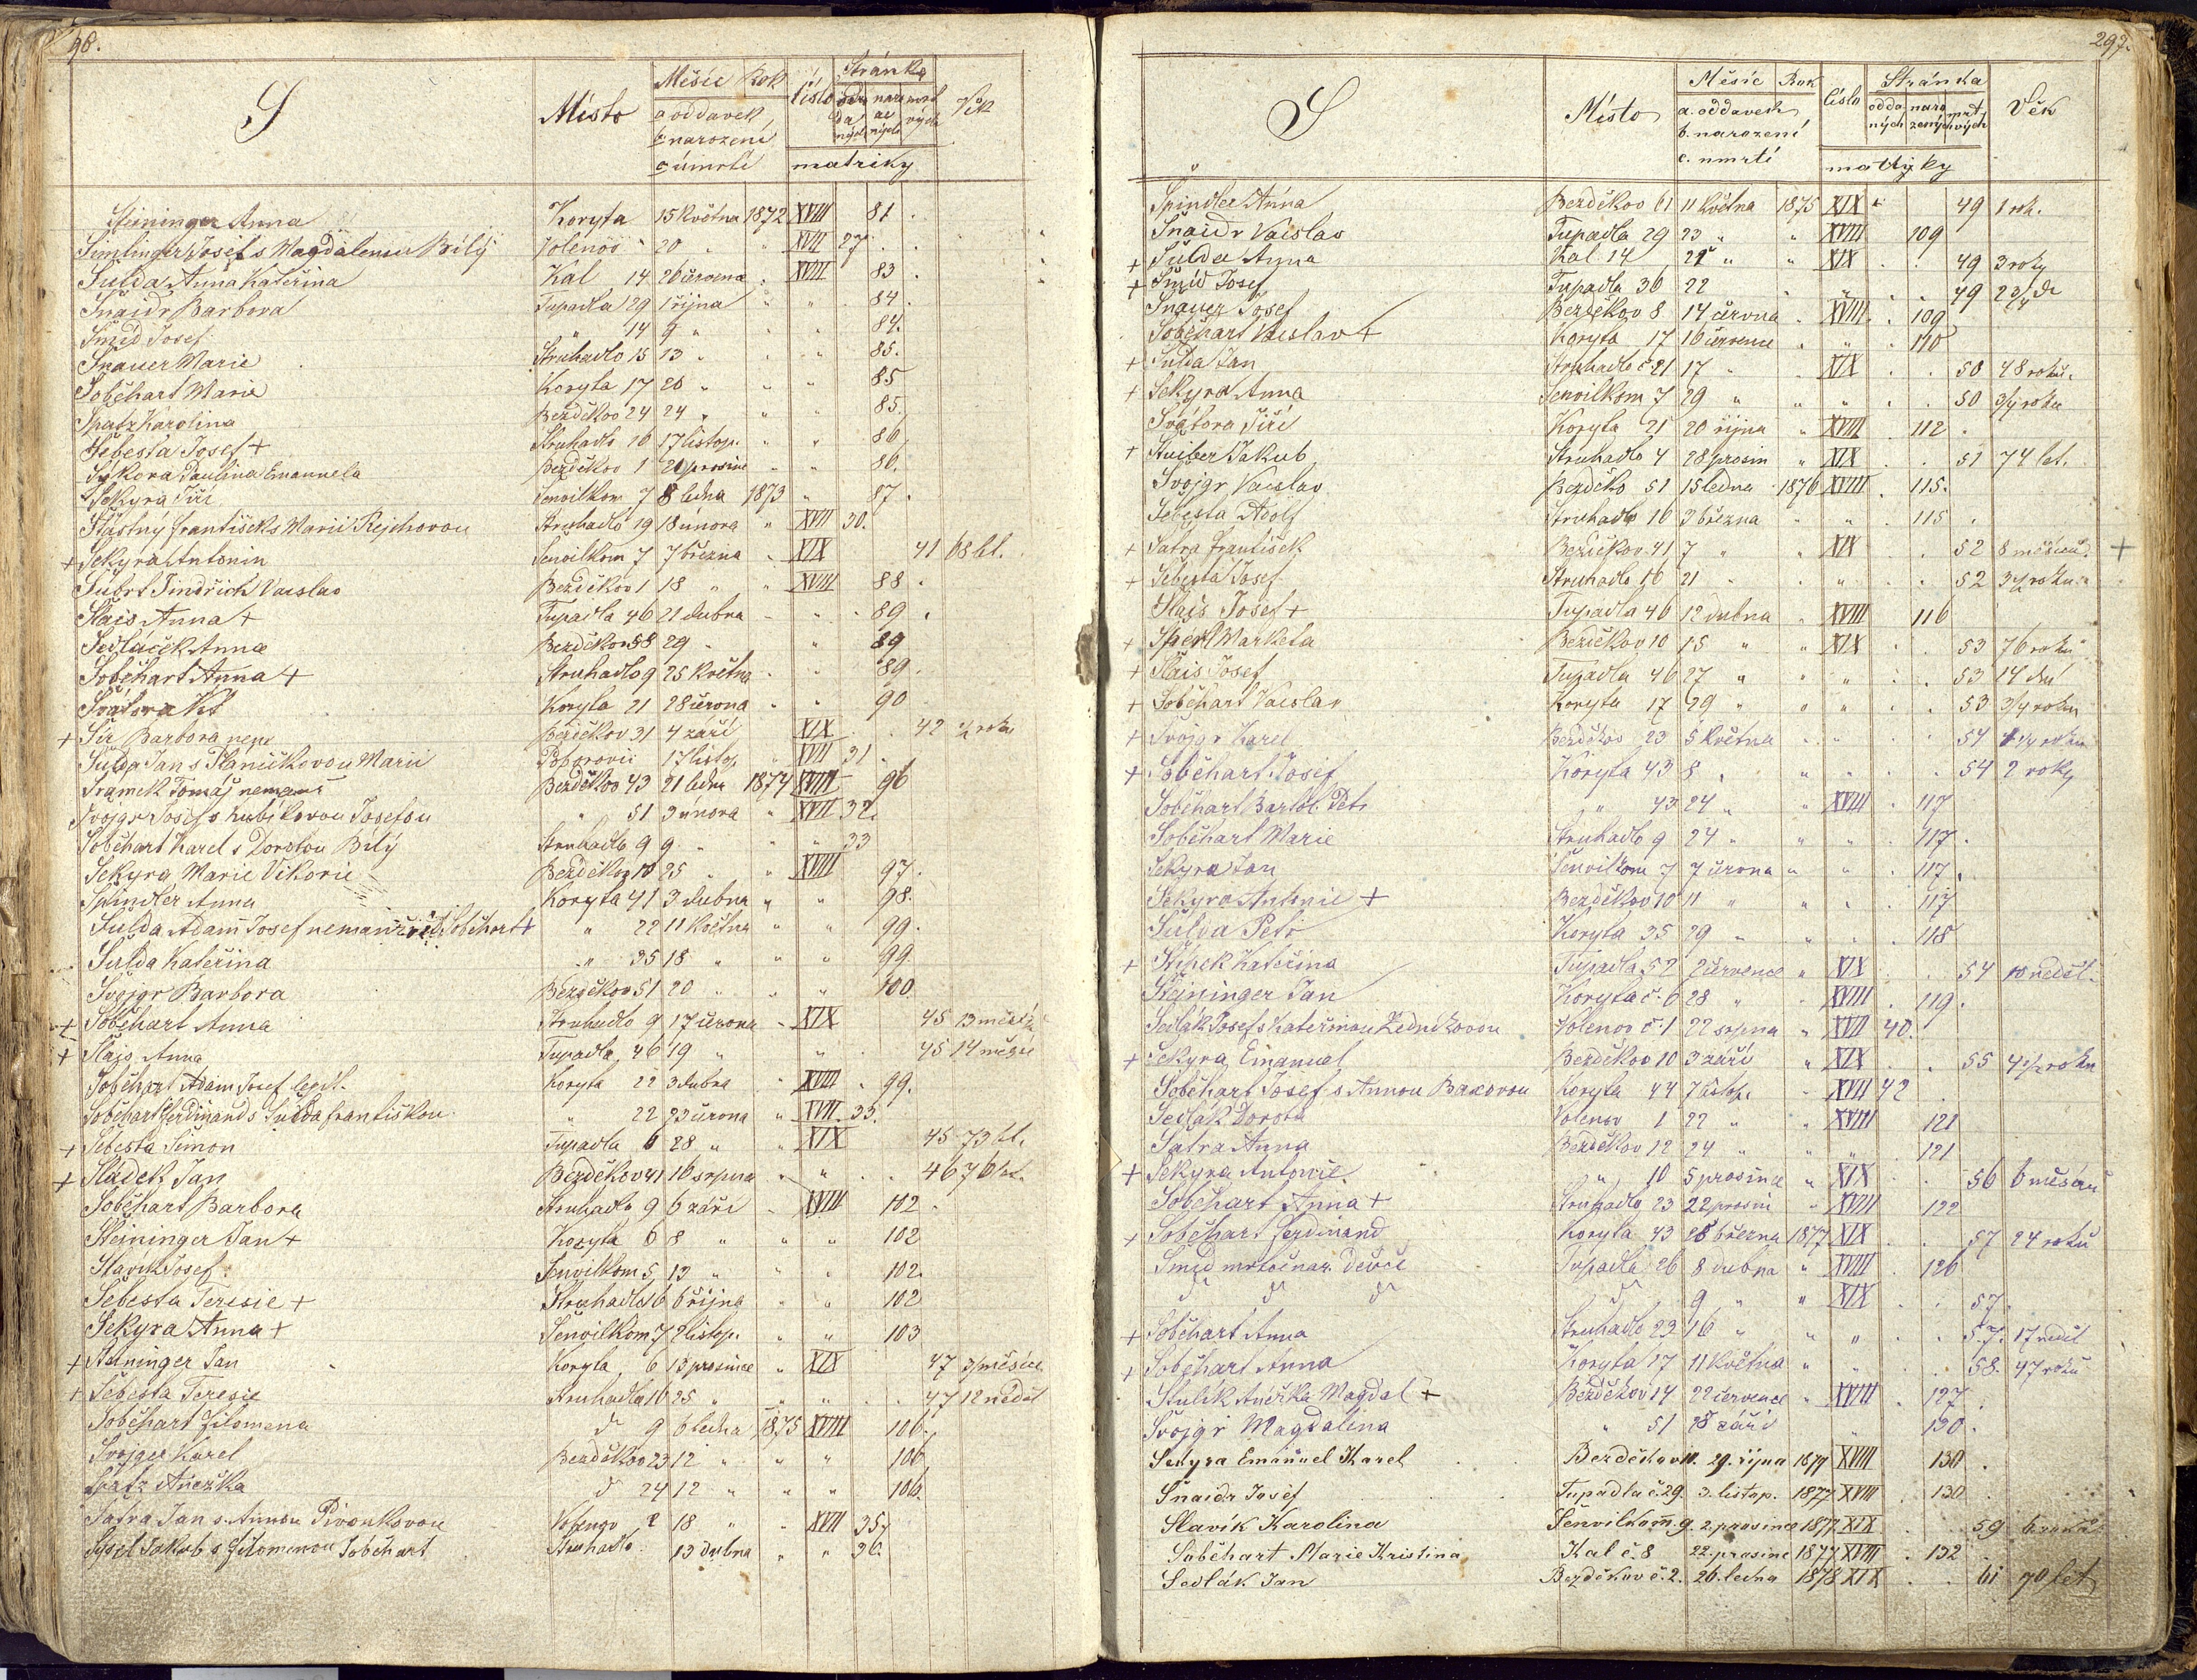 98.
S
Místo
Měsíc Rok
a oddavek
b narození
c úmrtí
Číslo
Stránka
matriky
Věk
Steininger Anna Koryta 15 Května 1872 XVIII 81.
Simlinger Josef s Magdalenou Bílý Volenov 20 " " XVII 27.
Šulda Anna Kateřina Kal 14 26 června " XVIII 83.
Šnaidr Barbora Tupadla 29 1 října " " 84.
Šmíd Josef " 14 9 " " " 84.
Šnauer Marie Struhadlo 15 13 " " " 85.
Soběhart Marie Koryta 17 20 " " " 85
Spatz Karolina Bezděkov 24 24 " " " 85.
Šebesta Josef + Struhadlo 16 17 listop. " " 86
Sýkora Paulina Emanuela Bezděkov 1 21 prosince " " 86.
Sekyra Jiří Senvilkom 7 8 ledna 1873 " 87.
Šťastný František s Marií Rejchovou Struhadlo 19 18 února " XVII 30.
+ Sekyra Antonin Senvilkom 7 7 března " XIX 41 68 let.
Šubrt Jindřich Vácslav Bezděkov 1 18 " " XVIII 88.
Šlais Anna + Tupadla 46 21 dubna " " 89.
Sedláček Anna Bezděkov 58 29 " " 89
Soběhart Anna + Struhadlo 9 25 Května " " 89.
Svátora Vít Koryta 21 28 června " " 90
+ Šír Barbora Bezděkov 31 4 září XIX 42 1/2 roku
Šulda Jan s Planičkovou Marií 17 listop. " XVII 31.
Šramek Tomáš Bezděkov 43 21 ledna 1874 XVIII 96
Svojgr Josef s Kubíkovou Josefou " 51 3 února " XVII 32.
Soběhart Karel s Dorotou Bílý Struhadlo 9 9 " " " 33
Sekyra Marie Viktorie Bezděkov 10 25 " " XVIII 97.
Spindler Anna Koryta 41 3 dubna " " 98.
Šulda Adam Josef Soběhart + " 22 11 Května " " 99.
Šulda Kateřina " 35 18 " " " 99
Svojgr Barbora Bezděkov 51 20 " " " 100.
+ Soběhart Anna Struhadlo 9 17 června " XIX 45 13 měsíc
+ Šlajs Anna Tupadla 46 19 " " 45 14 měsíc
Soběhart Adam Josef legit. Koryta 22 3 dubna " XVIII 99.
Soběhart Ferdinand s Šulda Františkou " 22 23 června " XVII 33.
+ Šebesta Šimon Tupadla 6 28 " " XIX 45 73 let.
+ Sládek Jan Bezděkov 41 16 srpna " " 46 76 let.
Soběhart Barbora Struhadlo 9 6 září " XVIII 102.
Steininger Jan + Koryta 6 8 " " " 102
Slavík Josef Senvilkom 5 13 " " " 102.
Šebesta Teresie + Struhadlo 16 6 října " " 102
Sekyra Anna + Senvilkom 7 2 listop. " " 103
+ Steininger Jan Koryta 6 13 prosince " XIX 47 3/4 měsíce
+ Šebesta Teresie Struhadlo 16 25 " " " 47 12 neděl
Soběhart Filomena " 9 6 ledna 1875 XVIII 106.
Svojger Karel Bezděkov 23 12 " " " 106
Spatz Anežka " 24 12 " " " 106.
Šatra Jan s Annou Pivonkovou Volenov 2 18 " " XVII 35.
Jakub s Filomenou Soběhart Struhadlo 13 dubna " " 36.
297.
S
Místo
Měsíc Rok
a. oddavek
b. narození
c. umrtí
Číslo
Stránka
oddaných narozených mrtvých
matriky
Věk
Spindler Anna Bezděkov 61 11 Května 1875 XIX 49 1 rok.
Šnaidr Vácslav Tupadla 29 23 " " XVIII 109
+ Šulda Anna Kal 14 25 " " XIX 49 3 roky
+ Šmíd Josef Tupadla 36 22 " " 49
Šnauer Josef Bezděkov 8 14 června " XVIII 109
Soběhart Vácslav + Koryta 17 16 července " " 110
+ Šulda Jan Struhadlo č 21 17 " " XIX 50 48 roků.
+ Sekyra Anna Senvilkom 7 29 " " " 50 3/4 roku
Svátora Jiří Koryta 21 20 října " XVIII 112.
+ Stuiber Jakub Struhadlo 4 28 prosin " XIX 51 74 let.
Svojgr Vácslav Bezděko 51 15 ledna 1876 XVIII 115.
Šebesta Adolf Struhadlo 16 3 března " " 115.
+ Šatra František Bezděkov 41 7 " " XIX 52 8 měsíců +
+ Šebesta Josef Struhadlo 16 21 " " " 52 3 1/4 roku
Šlais Josef + Tupadla 46 12 dubna " XVIII 116
+ Marketa Bezděkov 10 15 " " XIX 53 76 roků
+ Šlais Josef Tupadla 46 27 " " " 53 14 dní
+ Soběhart Vácslav Koryta 17 29 " " " 53 3/4 roku
+ Svojgr Karel Bezděkov 23 5 Května " " 54 1 1/4 roku
+ Soběhart Josef Koryta 43 8 " " " 54 2 roky
Soběhart Bartol. Petr " 43 24 " " XVIII 117
Soběhart Marie Struhadlo 9 24 " " " 117.
Sekyra Jan Senvilkom 7 7 června " " 117.
Sekyra Antonie + Bezděkov 10 11 " " " 117
Šulda Petr Koryta 35 29 " " " 118
+ Štípek Kateřina Tupadla 52 2 července " XIX 54 10 neděl.
Steininger Jan Koryta č. 6 28 " " XVIII 119.
Sedlák Josef s Kateřinou Ledníkovou Volenov č. 1 22 srpna " XVII 40.
+ Sekyra Emanuel Bezděkov 10 3 září " XIX 55 4 1/2 roku
Soběhart Josef s Annou Baxovou Koryta 44 7 listop. " XVII 42
Sedlák Dorota Volenov 1 22 " " XVIII 121
Šatra Anna Bezděkov 12 24 " " " 121
+ Sekyra Antonie " 10 5 prosince " XIX 56 6 měsíců
Soběhart Anna + Struhadlo 23 22 prosin " XVIII 122
+ Soběhart Ferdinand Koryta 43 28 března 1877 XIX 57 24 roků
Šmíd mrtvěnar. děvče Tupadla 26 8 dubna " XVIII 126
dº dº dº dº 9 " " XIX 57.
+ Soběhart Anna Struhadlo 23 16 " " " 57. 17 neděl
+ Soběhart Anna Koryta 17 11 Května " " 58. 47 roků
Stulík Anežka Magdal + Bezděkov 14 22 července " XVIII 127
Svojgr Magdalina " 51 28 září " 130.
Sekyra Emanuel Karel Bezděkov 10. 29. října 1877 XVIII 130.
Šnaidr Josef Tupadla č. 29. 3. listop. 1877 XVIII 130
Slavík Karolina Senvilkom. 9. 2. prosince 1877 XIX 59 6 roků
Soběhart Marie Kristina Kal č. 8 22. prosince 1877 XVIII 132
Sedlák Jan Bezděkov č. 2. 26. ledna 1878 XIX 61 70 let